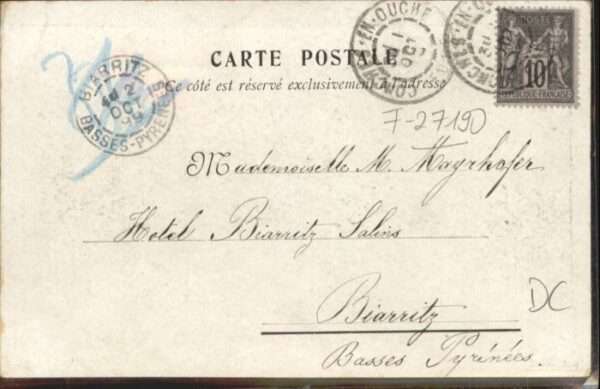 CARTE POSTALE
Ce côté est réservé exclusivement à l'adresse
EN-OUCHE
OCT
EN-O
POSTE
10
BIARRITZ
2
OCT
99
BASSES-PYRENEES
7-27190
Mademoiselle M. Mayrhofer
Hotel Biarritz Salins
Biarritz
Basses Pyrénées.
DC